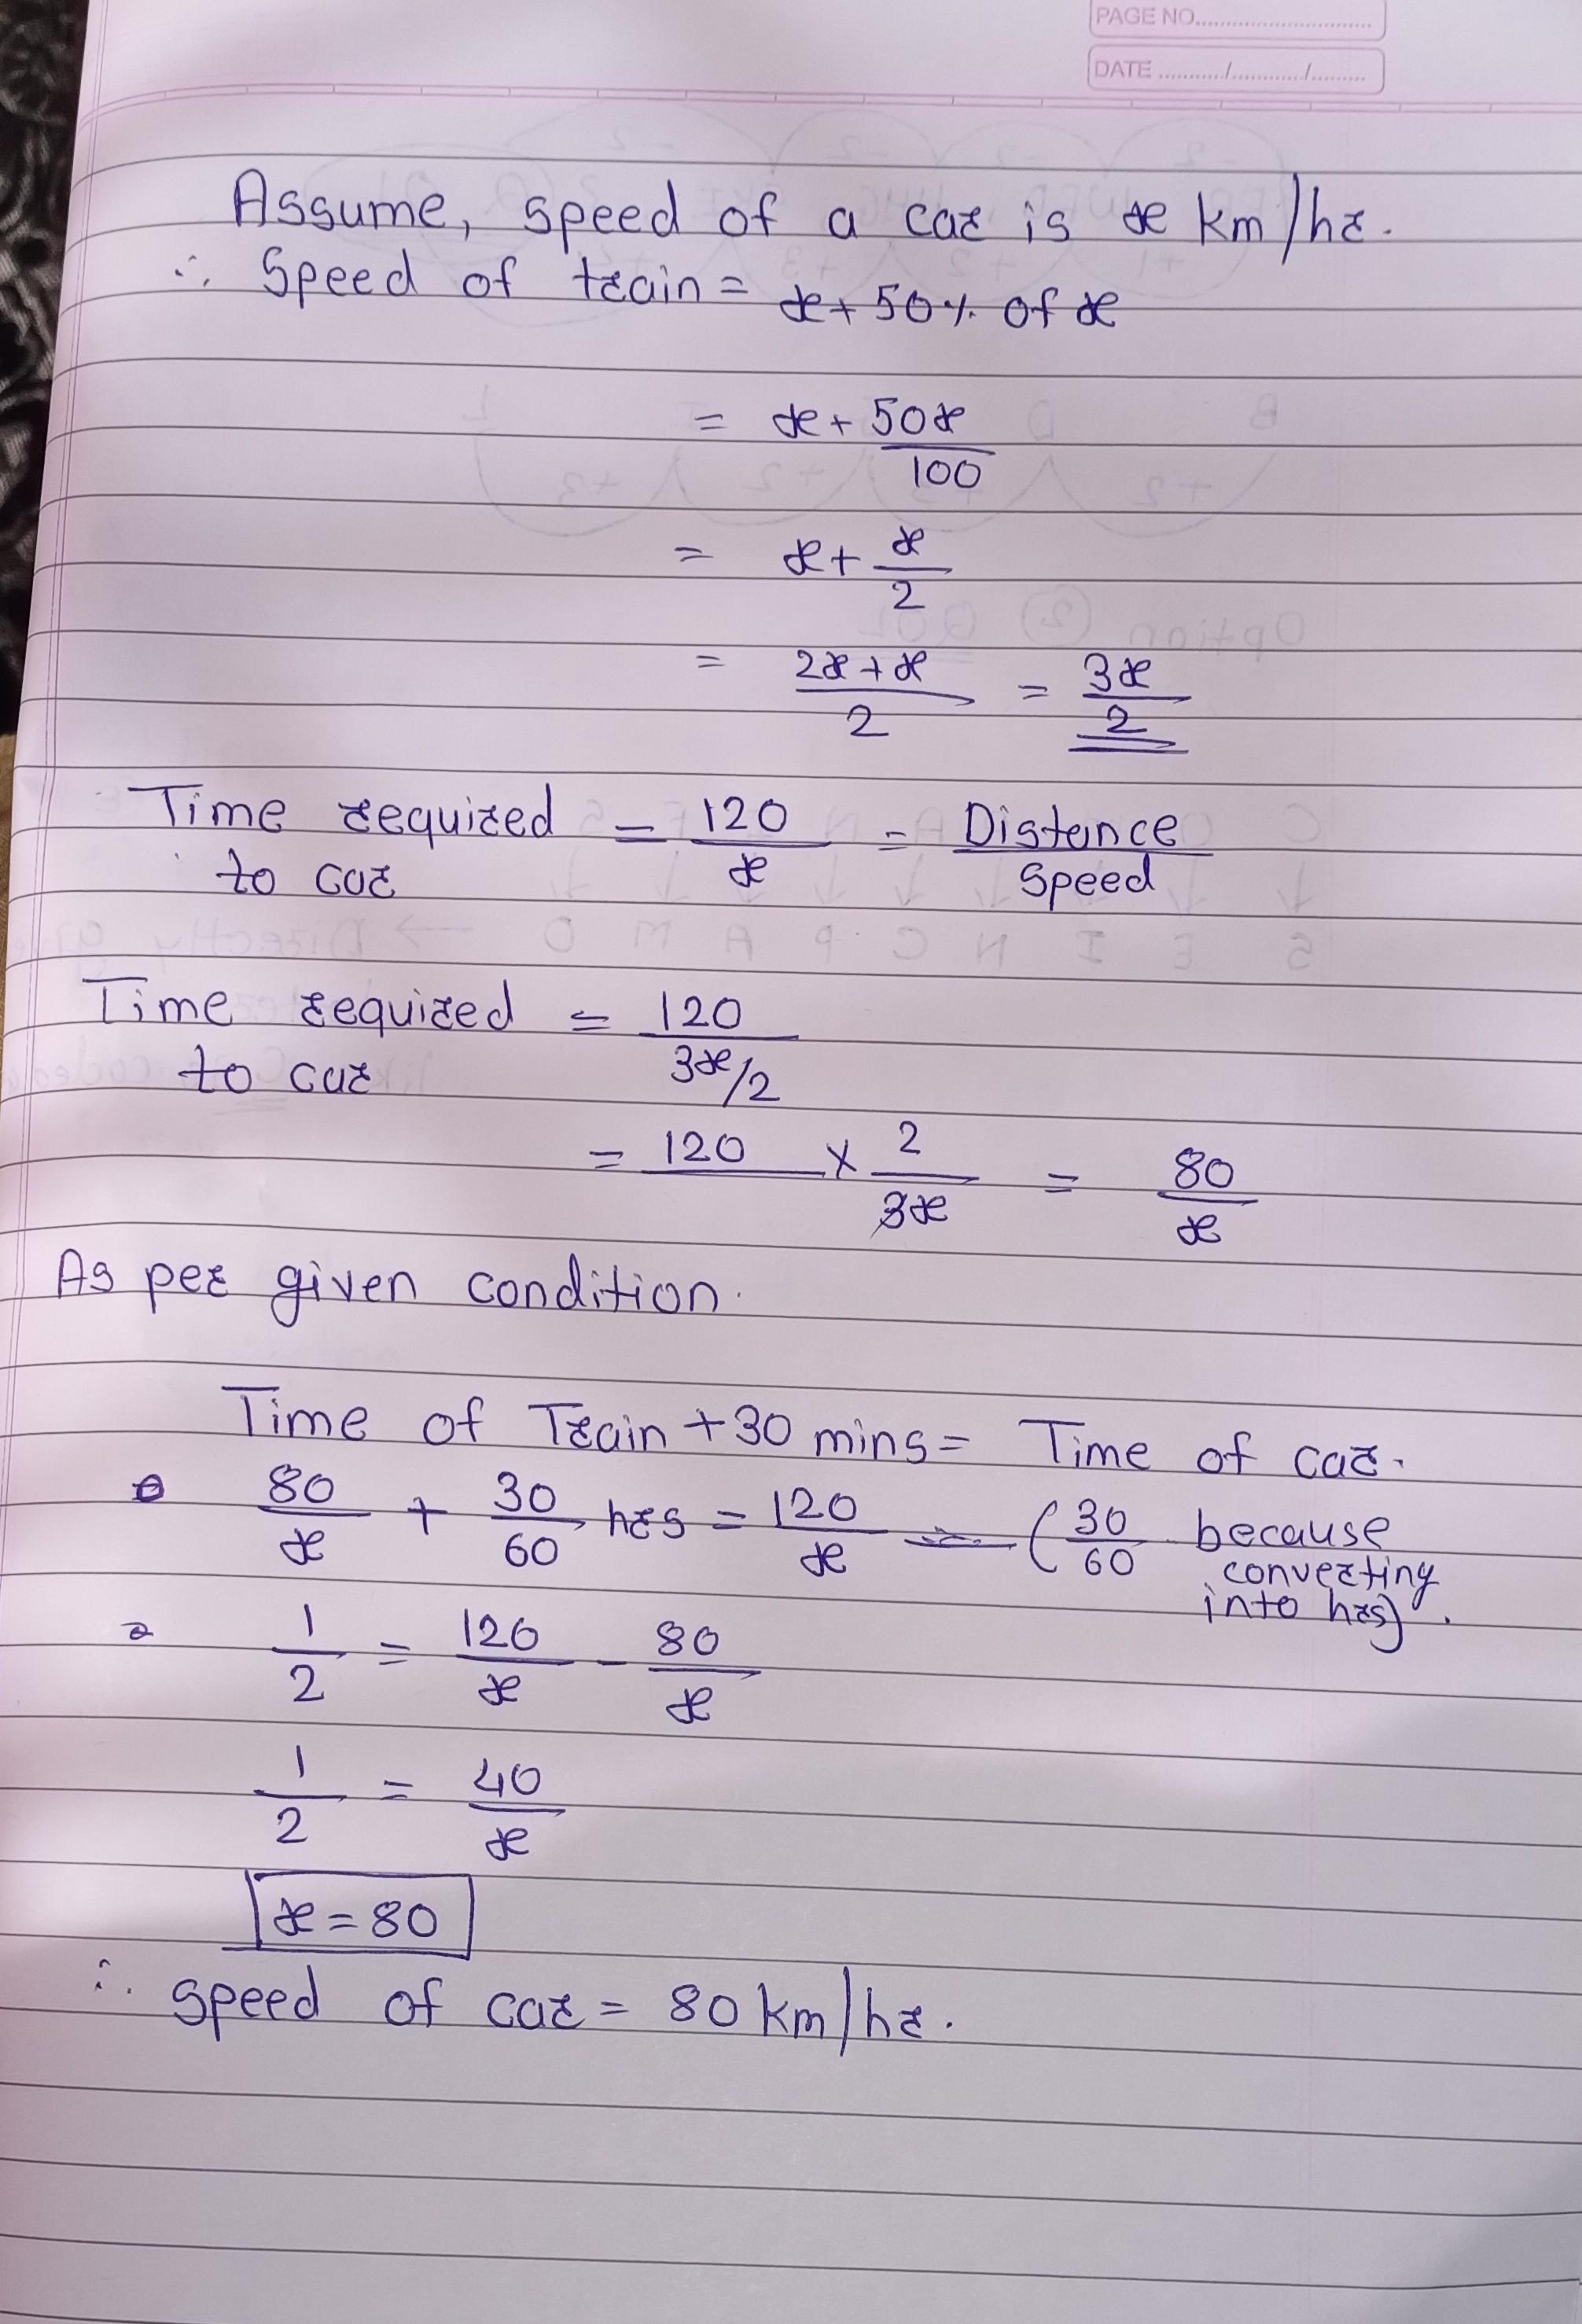 PAGE NO.
DATE ........../............/.........
Assume, speed of a car is x km/hr.
∴ Speed of train = x + 50% of x
= x + 50x/100
= x + x/2
= 2x + x/2 = 3x/2
Time required to car = 120/x = Distance/Speed
Time required to car = 120/3x/2
= 120 × 2/3x = 80/x
As per given condition.
Time of Train + 30 mins = Time of car.
80/x + 30/60 hrs = 120/x — (30/60 because converting into hrs).
1/2 = 120/x - 80/x
1/2 = 40/x
x = 80
∴ speed of car = 80 km/hr.